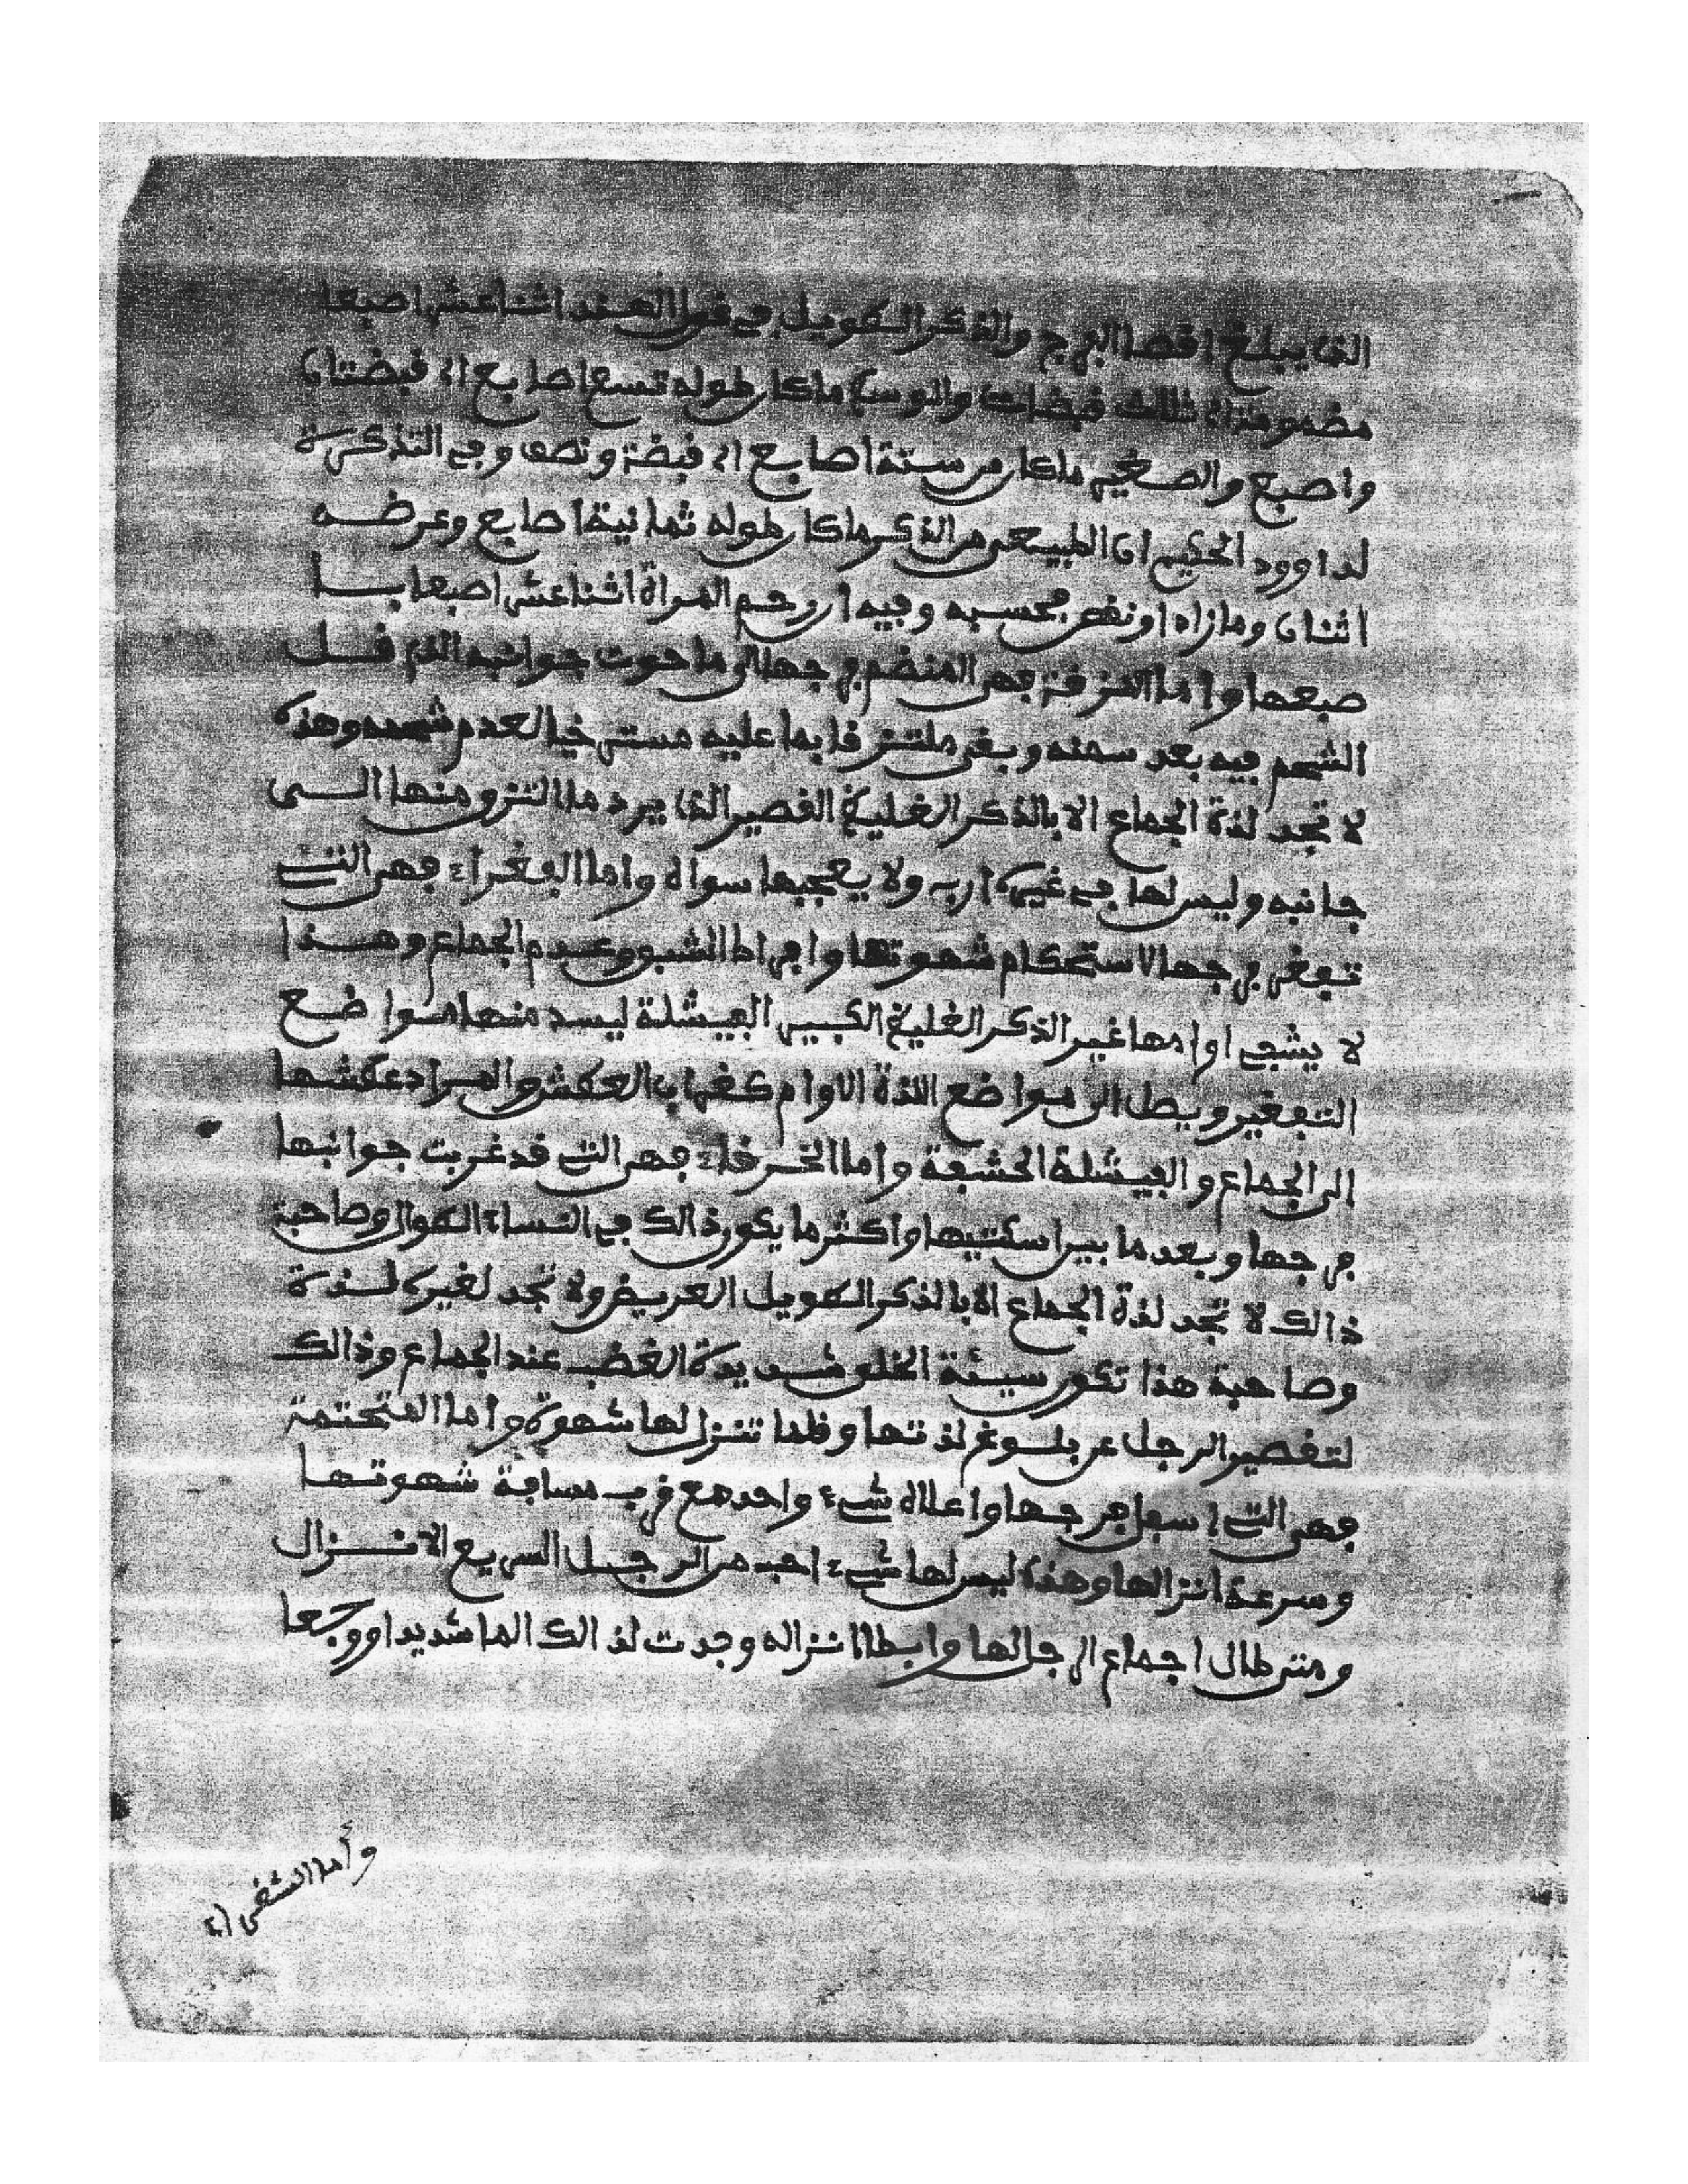 الذي يبلغ اقصا الفرج والذكر الطويل في قول الهند اثنا عشر اصبعا
مضمومة الى ثلاث قبضات والوسط ماكان طوله تسع اصابع الى قبضتان
واصبع والصغير ماكان من ستة اصابع الى قبضة ونصف وفي التذكرة
لداوود الحكيم ان الطبيعي من الذكر ماكان طوله ثمانية اصابع وعرضه
اثنان ومازاد او نقص بحسبه وفيه ان رحم المرأة اثنا عشر اصبعا با
صبعها واما اللزقة فهي المنضم فرجها الى ما حوت جوانبه الذي قل
الشحم فيه بعد سمنه وبقي ملتزقا بما عليه مسترخيا لعدم شحمه وهذه
لا تجد لذة الجماع الا بالذكر الغليظ القصير الذي يرد ما التزق منها الى
جانبه وليس لها في غيره اربه ولا يعجبها سواه واما الفغراء فهي التي
تفغر فرجها لاستحكام شهوتها وافراط الشبق وعدم الجماع وهذا
لا يشفي اوامها غير الذكر الغليظ الكبير الفيشلة ليسد منها مواضع
التفغير ويصل الى مواضع اللذة الاوام كغراب العطش والمراد عطشها
الى الجماع والفيشلة الحشفة واما الخرقاء فهي التي قد غربت جوانبها
فرجها وبعد ما بين اسكتيها واكثر ما يكون ذالك في النساء الطوال وصاحبة
ذالك لا تجد لذة الجماع الا بالذكر الطويل العريض ولا تجد لغيره لذة
وصاحبة هذا تكون سيئة الخلق شديدة الغضب عند الجماع وذالك
لتقصير الرجل عن بلوغ لذتها وقلما تنزل لها شهوة واما المختتمة
فهي التي اسفل فرجها واعلاه شيء واحد مع قرب مسافة شهوتها
وسرعة انزالها وهذه ليس لها شيء احب من الرجل السريع الانزال
ومتى طال اجماع الرجال لها وابطا انزاله وجدت لذالك الما شديدا ووجعا
وأما الشفراء